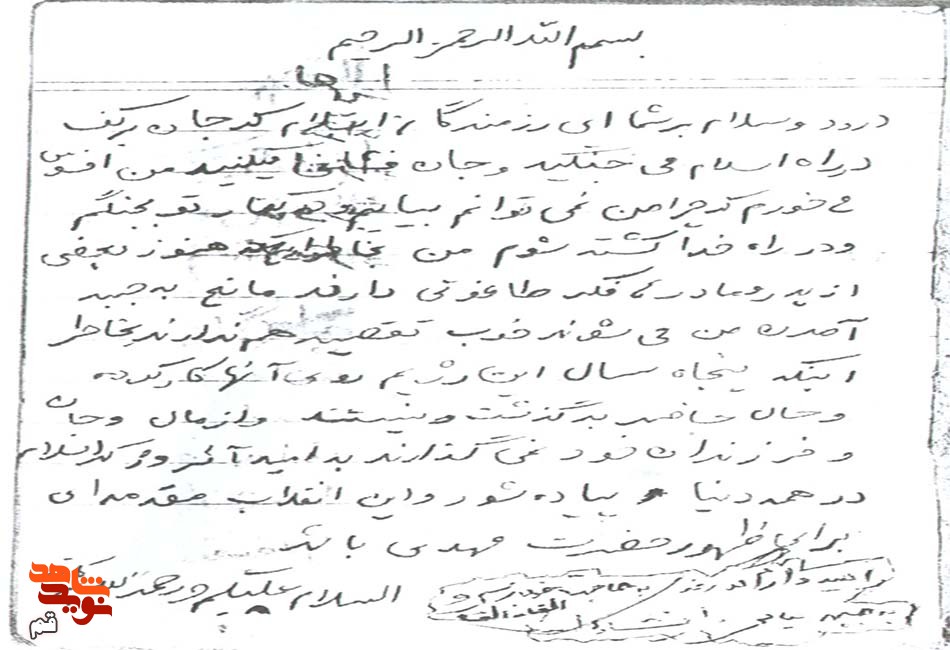 بسم الله الرحمن الرحیم
درود و سلام بر شما ای رزمندگان اسلام که جان بر کف
در راه اسلام می جنگید و جان می کنید من افسوس
می خورم که چرا من نمی توانم بیایم و در کنار تو بجنگم
و در راه خدا کشته شوم من بخاطر اینکه هنوز بعضی
از پدر و مادر فکر طاغوتی دارند مانع به جبهه
آمدن من می شوند خوب تقصیر هم ندارند بخاطر
اینکه پنجاه سال این رژیم روی آنها کار کرده
و حال حاضر به گذشت نیستند و از مال و جان
و فرزندان خود نمی گذارند به امید آن روز که اسلام
در همه دنیا پیاده شود و این انقلاب مقدمه ای
برای ظهور حضرت مهدی باشد
السلام علیکم و رحمة الله
شاهد
نوید
قم